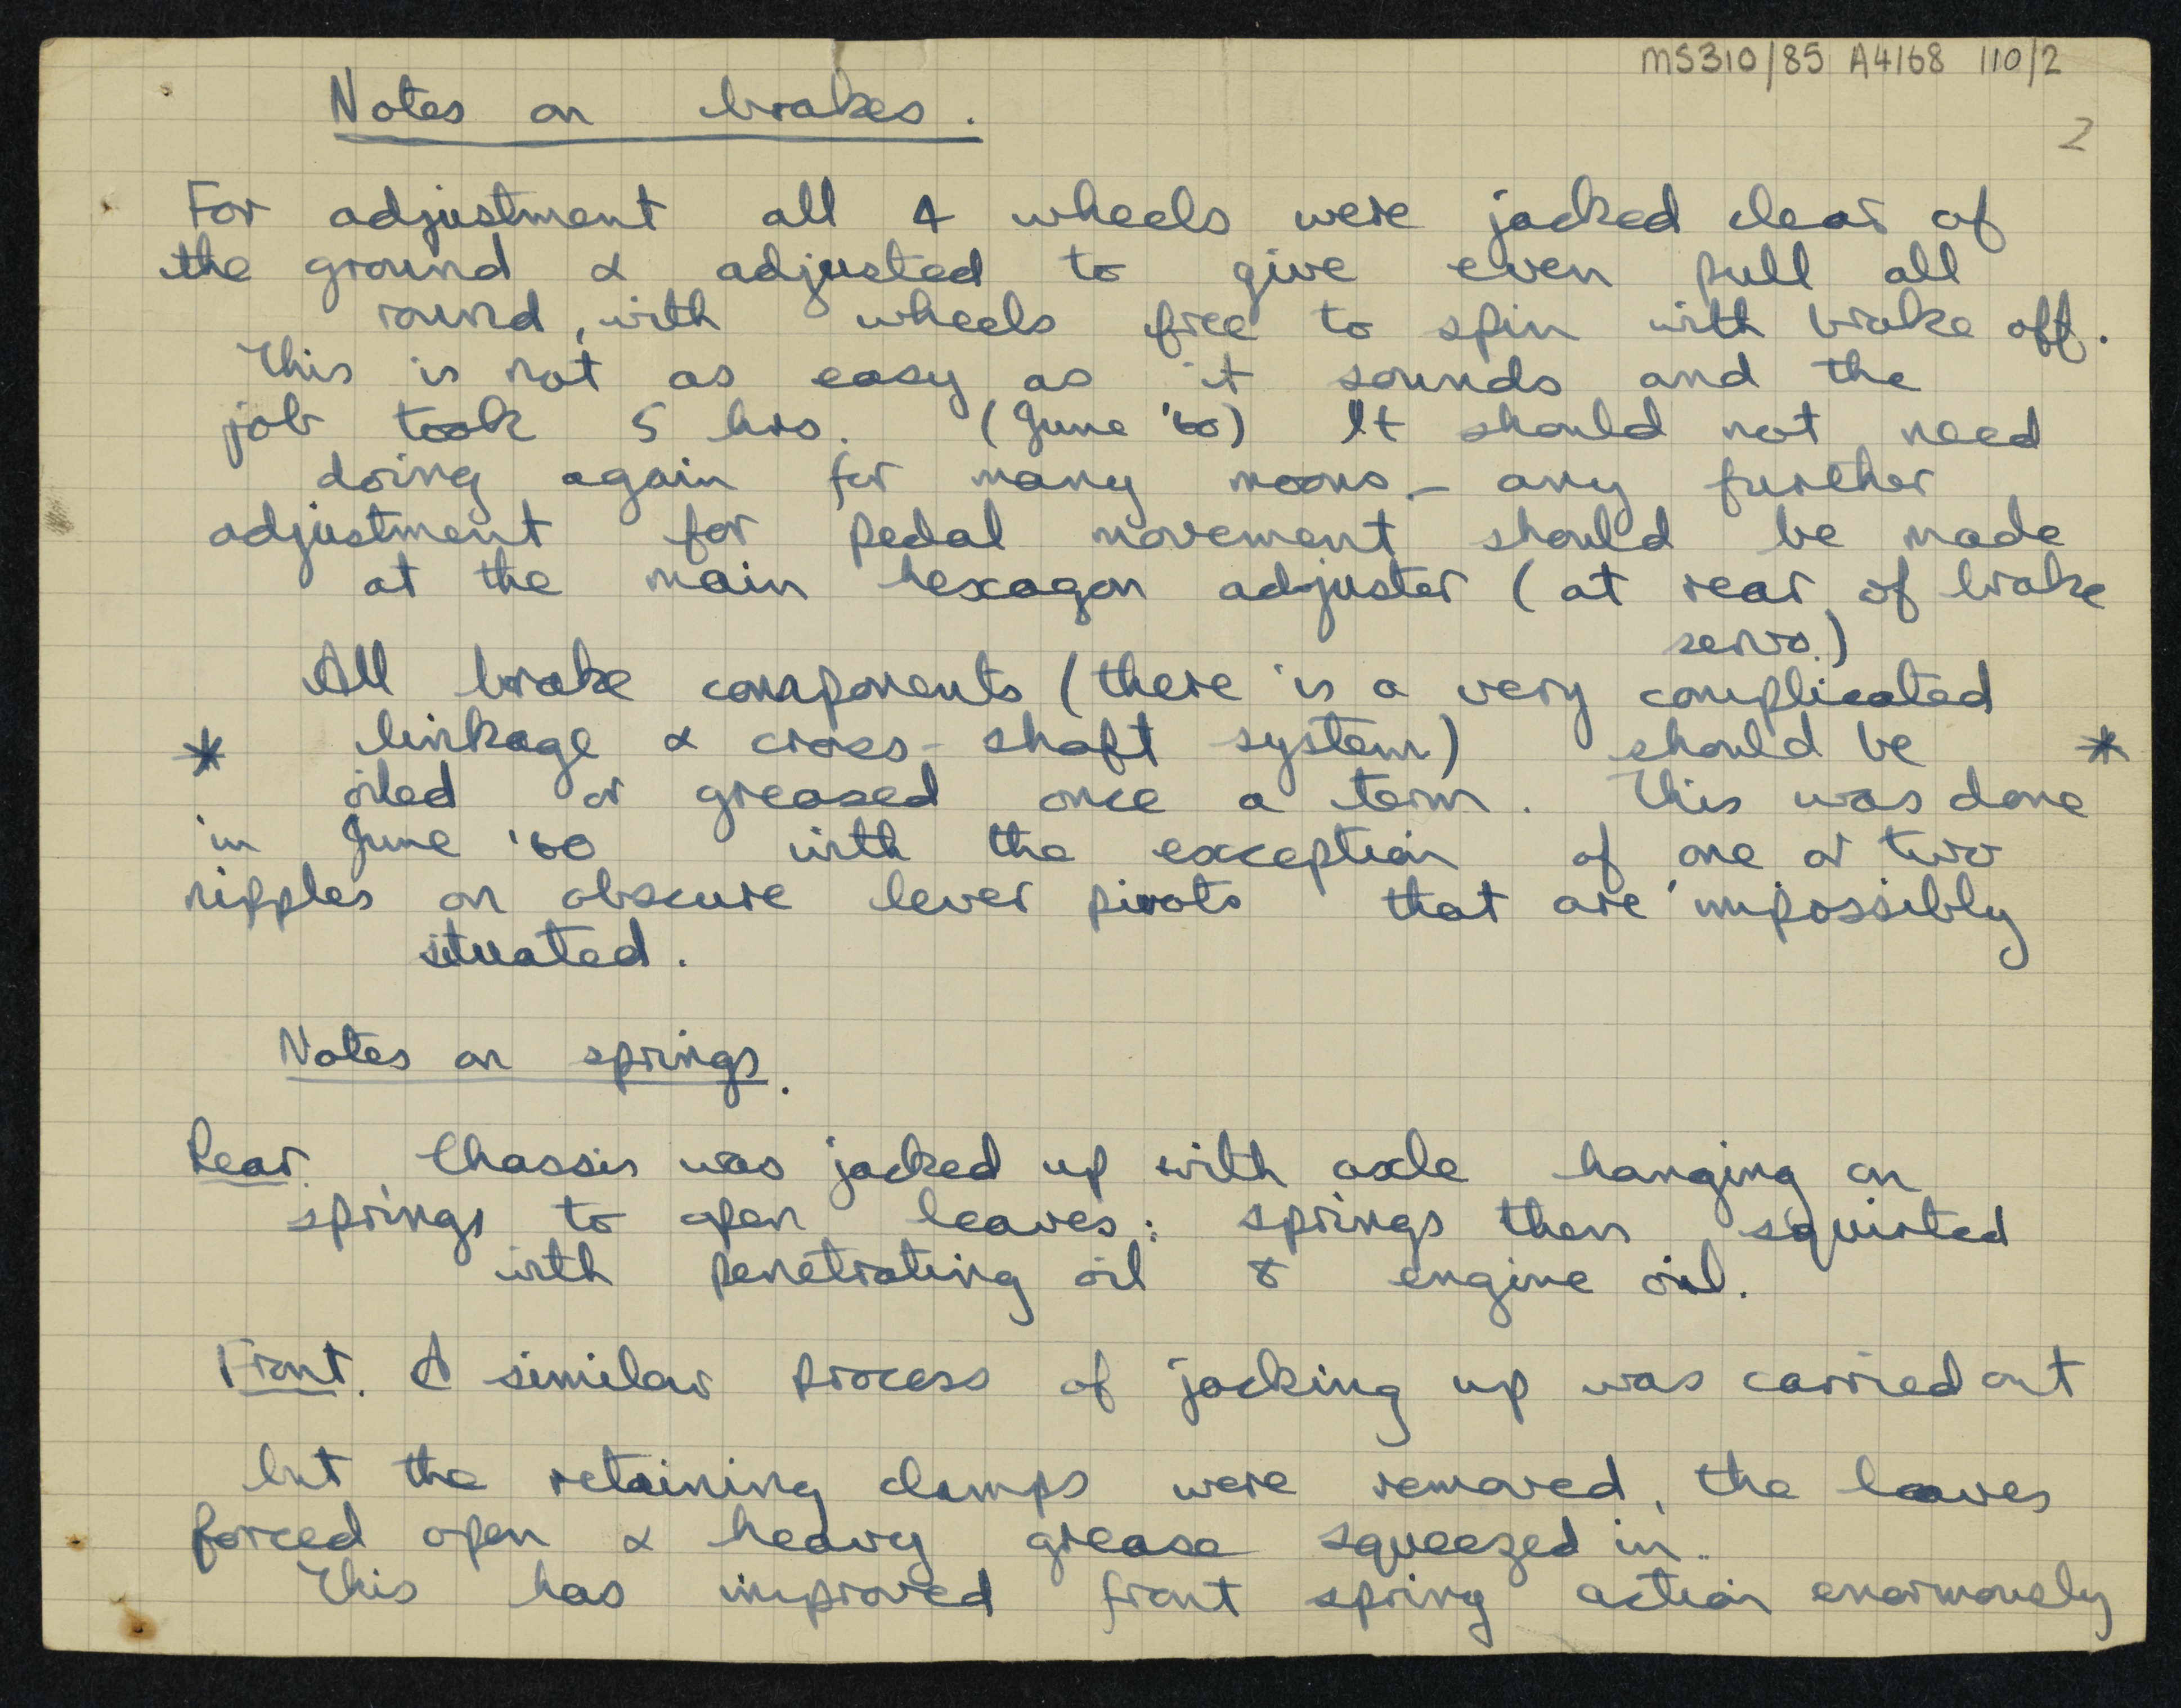 MS310/85 A4168 110/2
2
Notes on brakes.
For adjustment all 4 wheels were jacked clear of
the ground & adjusted to give even pull all
round, with wheels free to spin with brake off.
This is not as easy as it sounds and the
job took 5 hrs. (June '60) It should not need
doing again for many moons - any further
adjustment for pedal movement should be made
at the main hexagon adjuster (at rear of brake
servo.)
All brake components (there is a very complicated
* linkage & cross-shaft system) should be *
oiled or greased once a term. This was done
in June '60 with the exception of one or two
nipples on obscure lever pivots that are impossibly
situated.
Notes on springs.
Rear. Chassis was jacked up with axle hanging on
springs to open leaves: springs then squirted
with penetrating oil & engine oil.
Front. A similar process of jacking up was carried out
but the retaining clamps were removed, the leaves
forced open & heavy grease squeezed in.
This has improved front spring action enormously